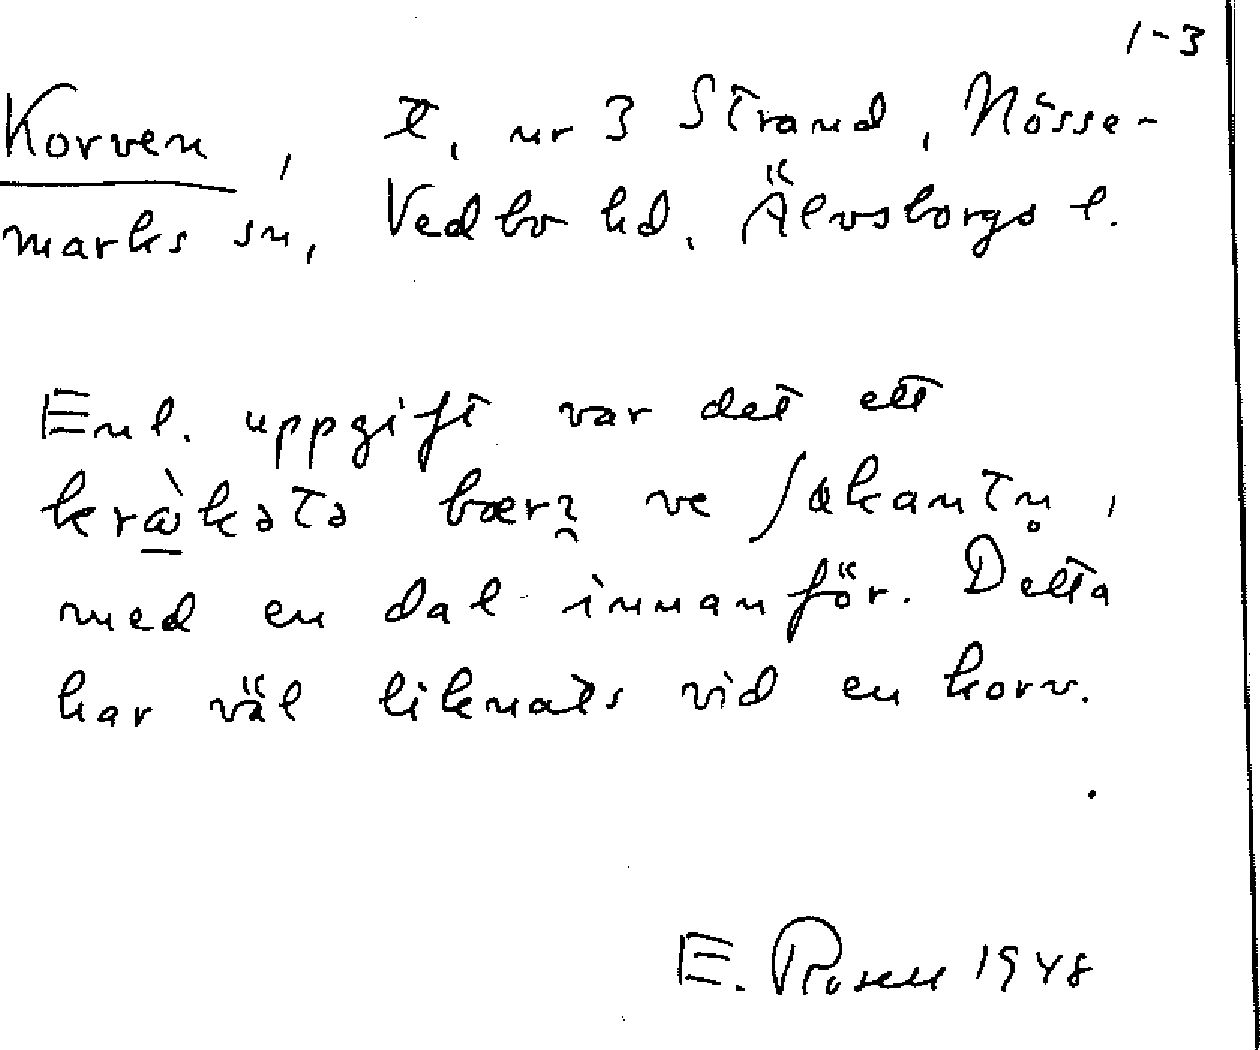 1-3
Korven, t, nr 3 Strand, Nösse-
marks sn, Vedbo hd, Älvsborgs l.
Enl. uppgift var det ett
kràkətə bærɿ ve ſøkantn̥,
med en dal innanför. Detta
har väl liknats vid en korv.
E. Rosen 1948